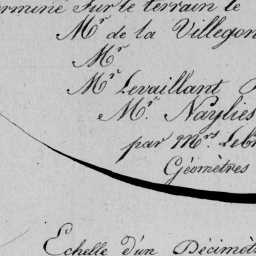 erminé Sur le terrain le
Mr. de la Villegon
Mr
Mr Levaillant
Mr. Naylies
par Mrs. Lebr
Géomètres
Echelle d'un Décimèt